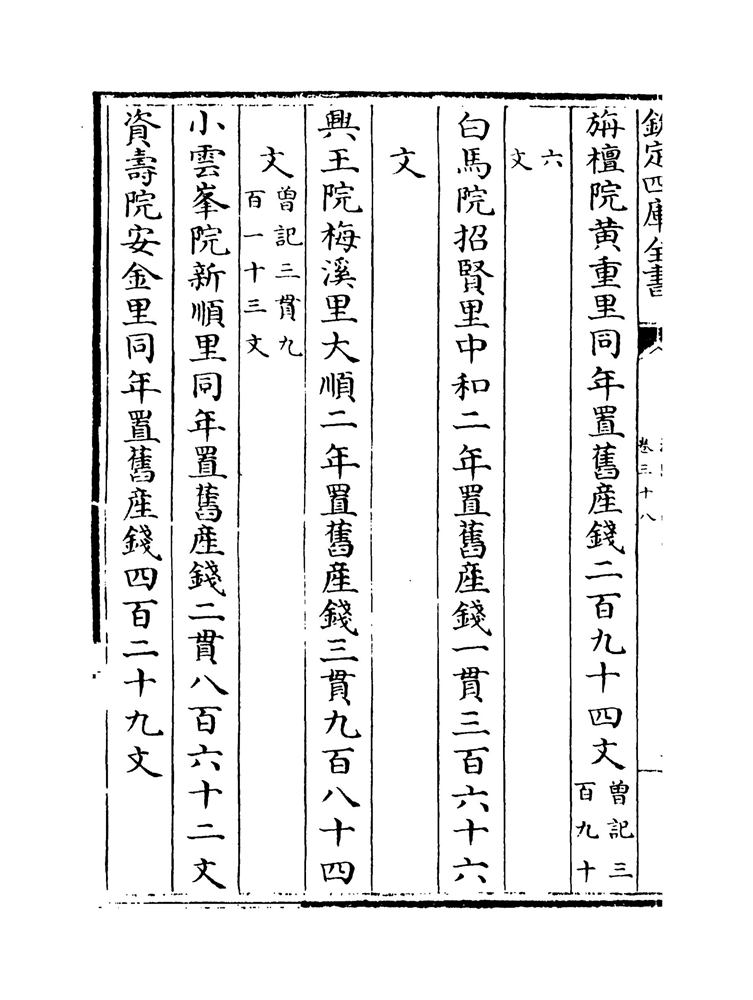 欽定四庫全書
卷三十八
旃檀院黄重里同年置舊産錢二百九十四文曽記三百九十
六文
白馬院招賢里中和二年置舊産錢一貫三百六十六
文
興王院梅溪里大順二年置舊産錢三貫九百八十四
文曽記三貫九百一十三文
小雲峯院新順里同年置舊産錢二貫八百六十二文
資壽院安金里同年置舊産錢四百二十九文